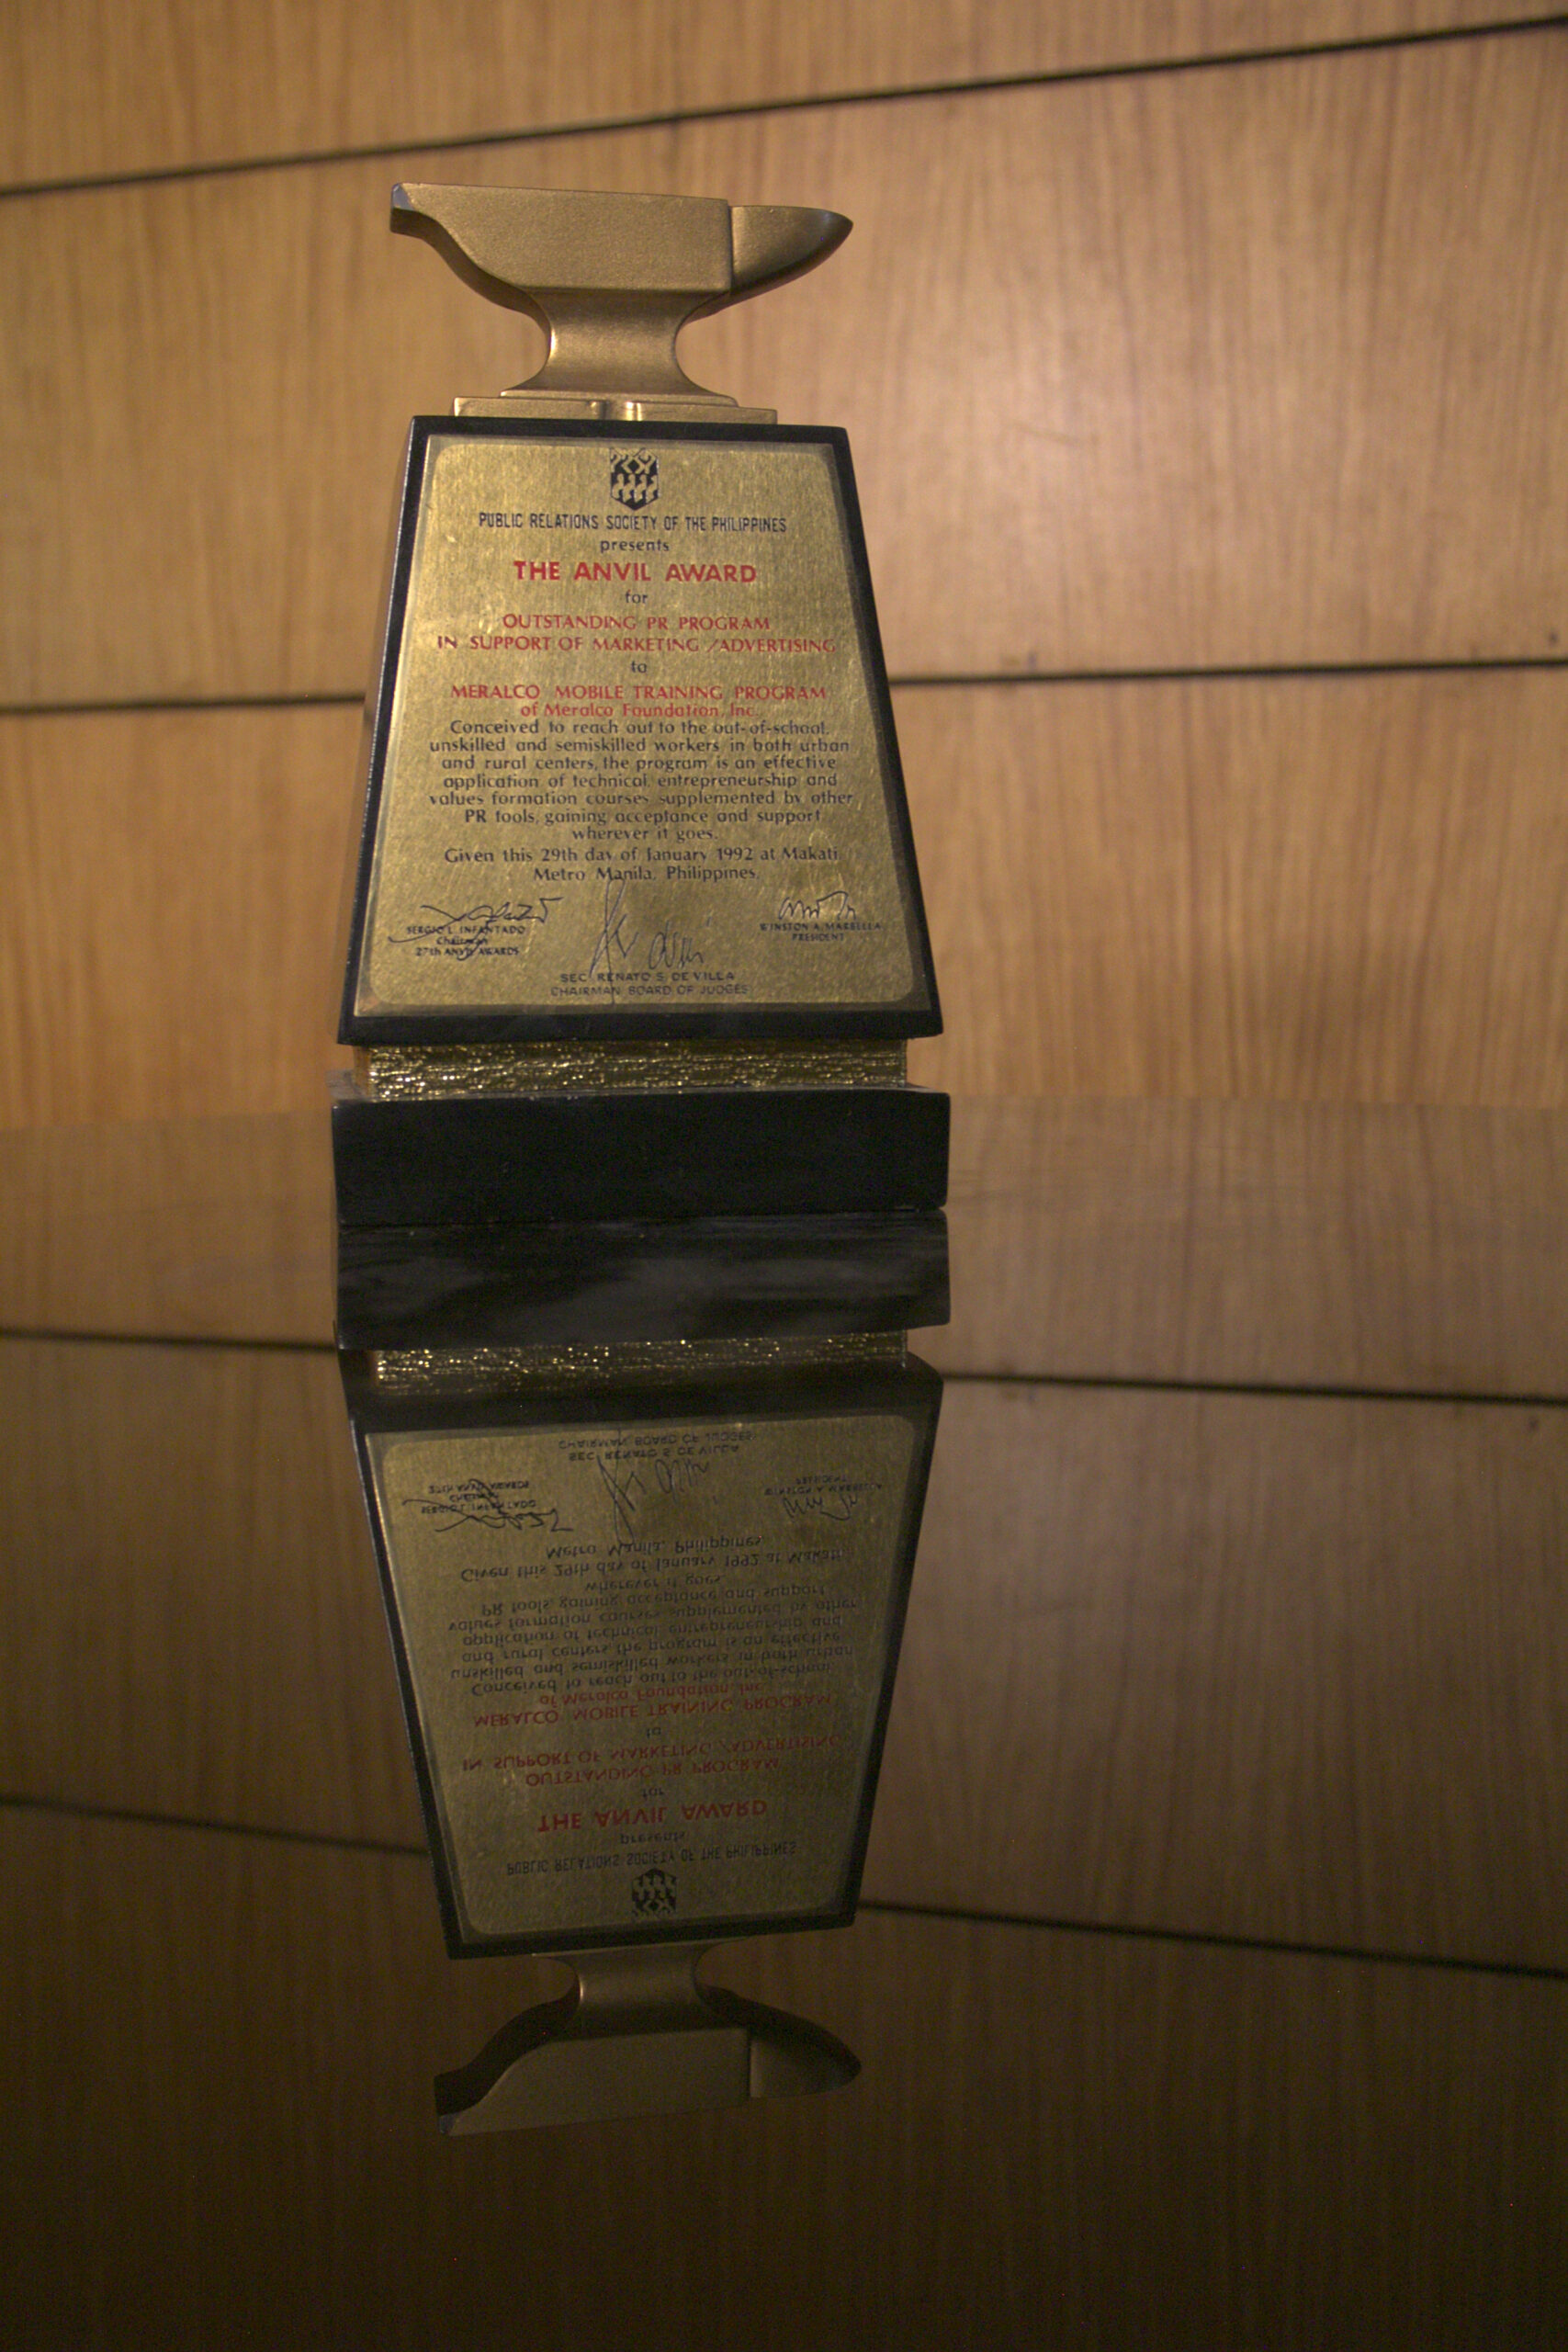 PUBLIC RELATIONS SOCIETY OF THE PHILIPPINES
presents
THE ANVIL AWARD
for
OUTSTANDING PR PROGRAM
IN SUPPORT OF MARKETING/ADVERTISING
to
MERALCO MOBILE TRAINING PROGRAM
of Meralco Foundation, Inc.
Conceived to reach out to the out-of-school,
unskilled and semiskilled workers in both urban
and rural centers, the program is an effective
application of technical, entrepreneurship and
values formation courses supplemented by other
PR tools, gaining acceptance and support
wherever it goes.
Given this 29th day of January 1992 at Makati,
Metro Manila, Philippines.
SERGIO L. INFANTADO
Chairman
27th ANVIL AWARDS
WINSTON A. MARBELLA
PRESIDENT
SEC. RENATO S. DE VILLA
CHAIRMAN BOARD OF JUDGES